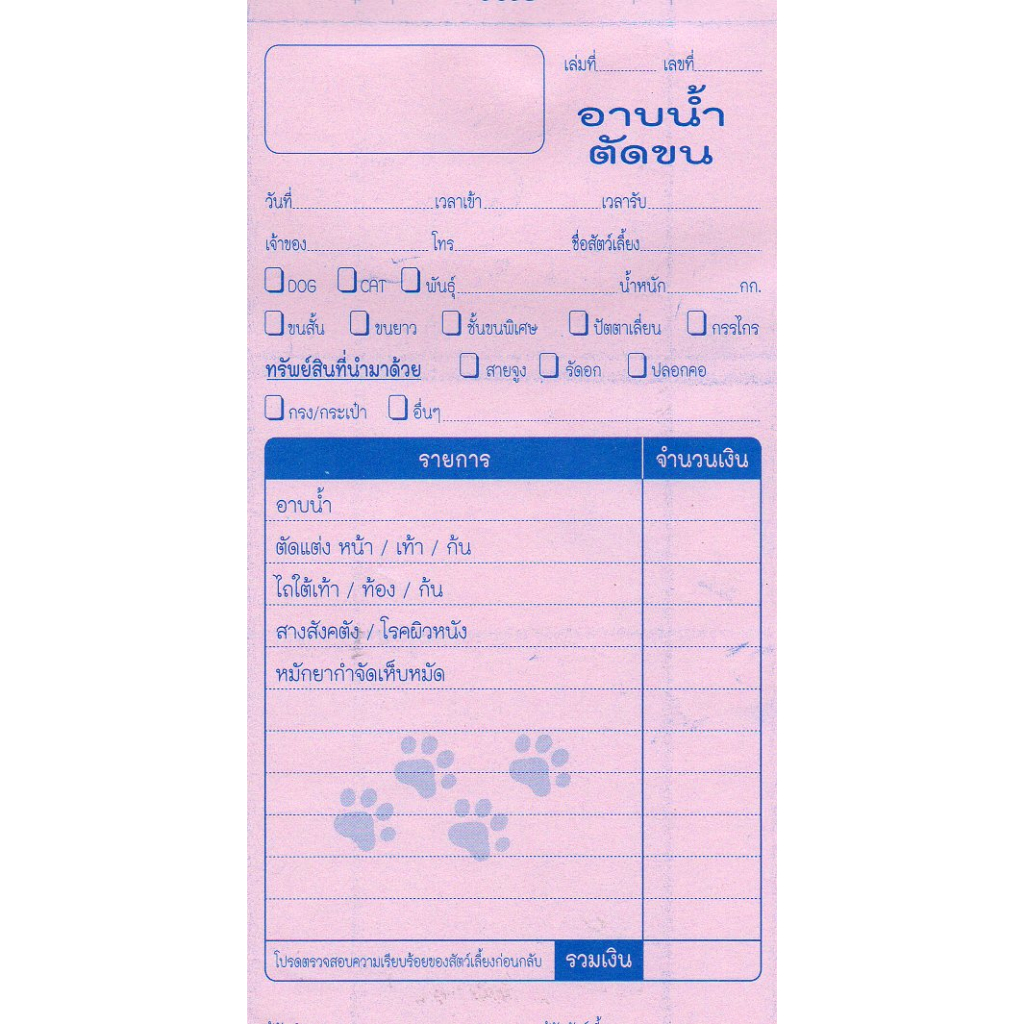 เล่มที่ เลขที่
อาบน้ำ
ตัดขน
วันที่ เวลาเข้า เวลารับ
เจ้าของ โทร ชื่อสัตว์เลี้ยง
DOG CAT พันธุ์ น้ำหนัก กก.
ขนสั้น ขนยาว ชั้นขนพิเศษ ปัตตาเลี่ยน กรรไกร
ทรัพย์สินที่นำมาด้วย สายจูง รัดอก ปลอกคอ
กรง/กระเป๋า อื่นๆ
รายการ จำนวนเงิน
อาบน้ำ
ตัดแต่ง หน้า / เท้า / ก้น
ไถใต้เท้า / ท้อง / ก้น
สางสังคตัง / โรคผิวหนัง
หมักยากำจัดเห็บหมัด
โปรดตรวจสอบความเรียบร้อยของสัตว์เลี้ยงก่อนกลับ รวมเงิน